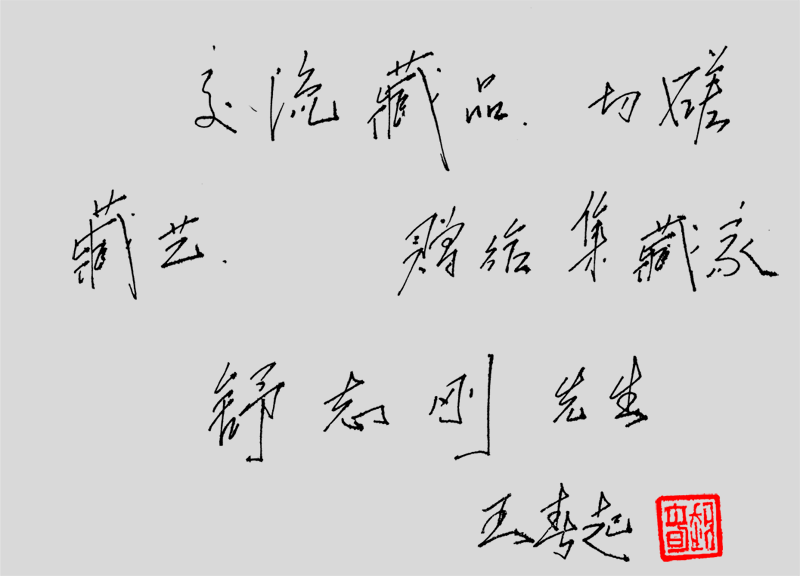 交流藏品.切磋
藏艺.赠给集藏家
舒志刚先生
王春起